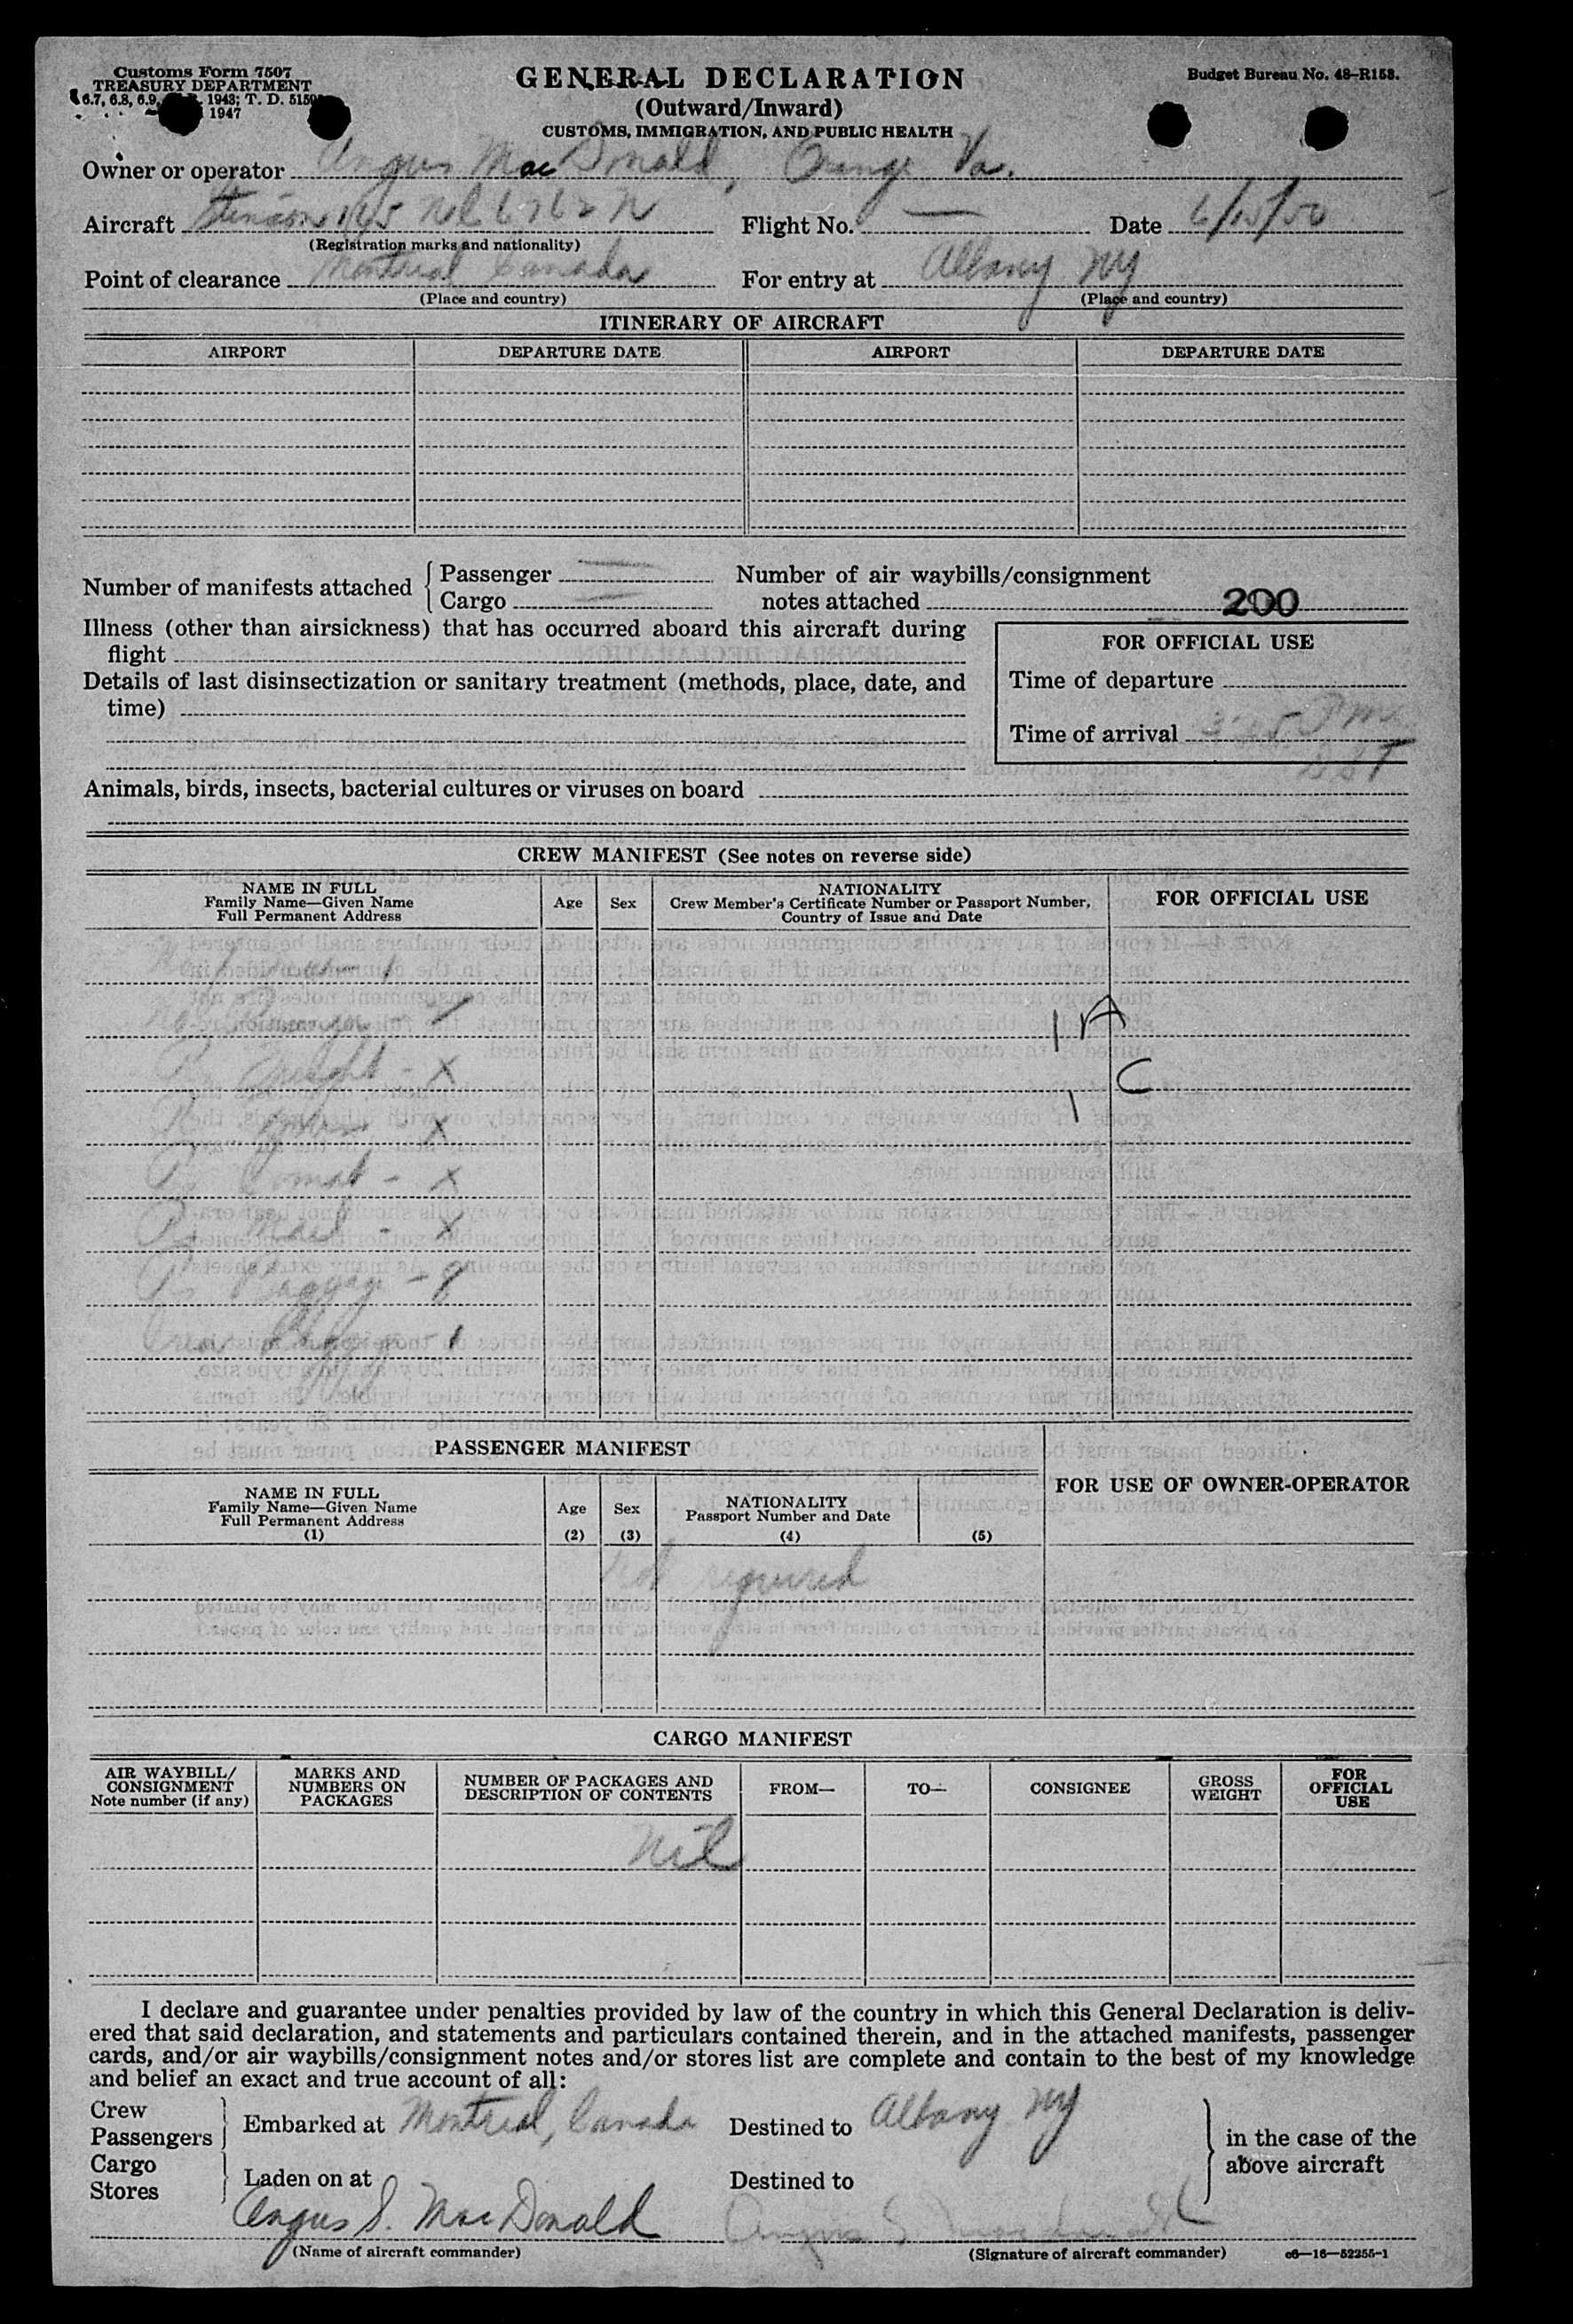 Customs Form 7507
TREASURY DEPARTMENT
6.7, 6.8, 6.9, 1943; T. D. 515
1947
GENERAL DECLARATION
(Outward/Inward)
CUSTOMS, IMMIGRATION, AND PUBLIC HEALTH
Budget Bureau No. 48-R153.
Owner or operator Angus MacDonald, Orange Va.
Aircraft Stinson 165 Flight No. — Date 6/15/50
(Registration marks and nationality)
Point of clearance Montreal Canada For entry at Albany NY
(Place and country) (Place and country)
ITINERARY OF AIRCRAFT
AIRPORT DEPARTURE DATE AIRPORT DEPARTURE DATE
Number of manifests attached { Passenger — Number of air waybills/consignment
Cargo — notes attached 200
Illness (other than airsickness) that has occurred aboard this aircraft during
flight
Details of last disinsectization or sanitary treatment (methods, place, date, and
time)
FOR OFFICIAL USE
Time of departure
Time of arrival Pm
Animals, birds, insects, bacterial cultures or viruses on board
CREW MANIFEST (See notes on reverse side)
NAME IN FULL
Family Name—Given Name
Full Permanent Address
Age
Sex
NATIONALITY
Crew Member's Certificate Number or Passport Number,
Country of Issue and Date
FOR OFFICIAL USE
1 A
C
1
- X
- X
- X
Mail - X
Baggage -
- 1
PASSENGER MANIFEST
FOR USE OF OWNER-OPERATOR
NAME IN FULL
Family Name—Given Name
Full Permanent Address
(1)
Age
(2)
Sex
(3)
NATIONALITY
Passport Number and Date
(4)
(5)
Not required
CARGO MANIFEST
AIR WAYBILL/
CONSIGNMENT
Note number (if any)
MARKS AND
NUMBERS ON
PACKAGES
NUMBER OF PACKAGES AND
DESCRIPTION OF CONTENTS
FROM—
TO—
CONSIGNEE
GROSS
WEIGHT
FOR
OFFICIAL
USE
Nil
I declare and guarantee under penalties provided by law of the country in which this General Declaration is deliv-
ered that said declaration, and statements and particulars contained therein, and in the attached manifests, passenger
cards, and/or air waybills/consignment notes and/or stores list are complete and contain to the best of my knowledge
and belief an exact and true account of all:
Crew
Passengers } Embarked at Montreal, Canada Destined to Albany NY
Cargo
Stores } Laden on at Destined to
} in the case of the
above aircraft
Angus S. MacDonald Angus S. MacDonald
(Name of aircraft commander) (Signature of aircraft commander) c6—16—52255-1